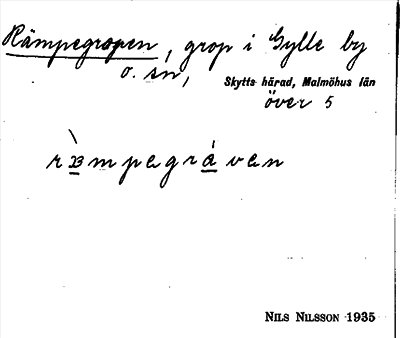 Rämpegropen, grop i Gylle by
o. sn,
Skytts härad, Malmöhus län
över 5
ræmpagråvan
NILS NILSSON 1935